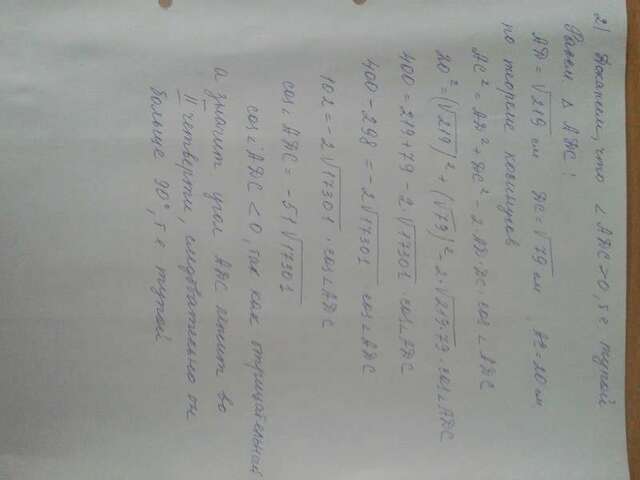 2) Докажем, что ∠ADC>0, т.е. тупой
Рассм ΔADC:
AD = √219 см DC = √79 см, AC = 20 см
по теореме косинусов
AC² = AD² + DC² - 2 AD·DC·cos∠ADC
20² = (√219)² + (√79)² - 2·√219·79·cos∠ADC
400 = 219+79 - 2√17301·cos∠ADC
400 - 298 = -2√17301 cos∠ADC
102 = -2√17301·cos∠ADC
cos∠ADC = -51√17301
cos∠ADC < 0, так как отрицательный
а значит угол ADC лежит во
II четверти, следовательно он
больше 90°, т.е тупой